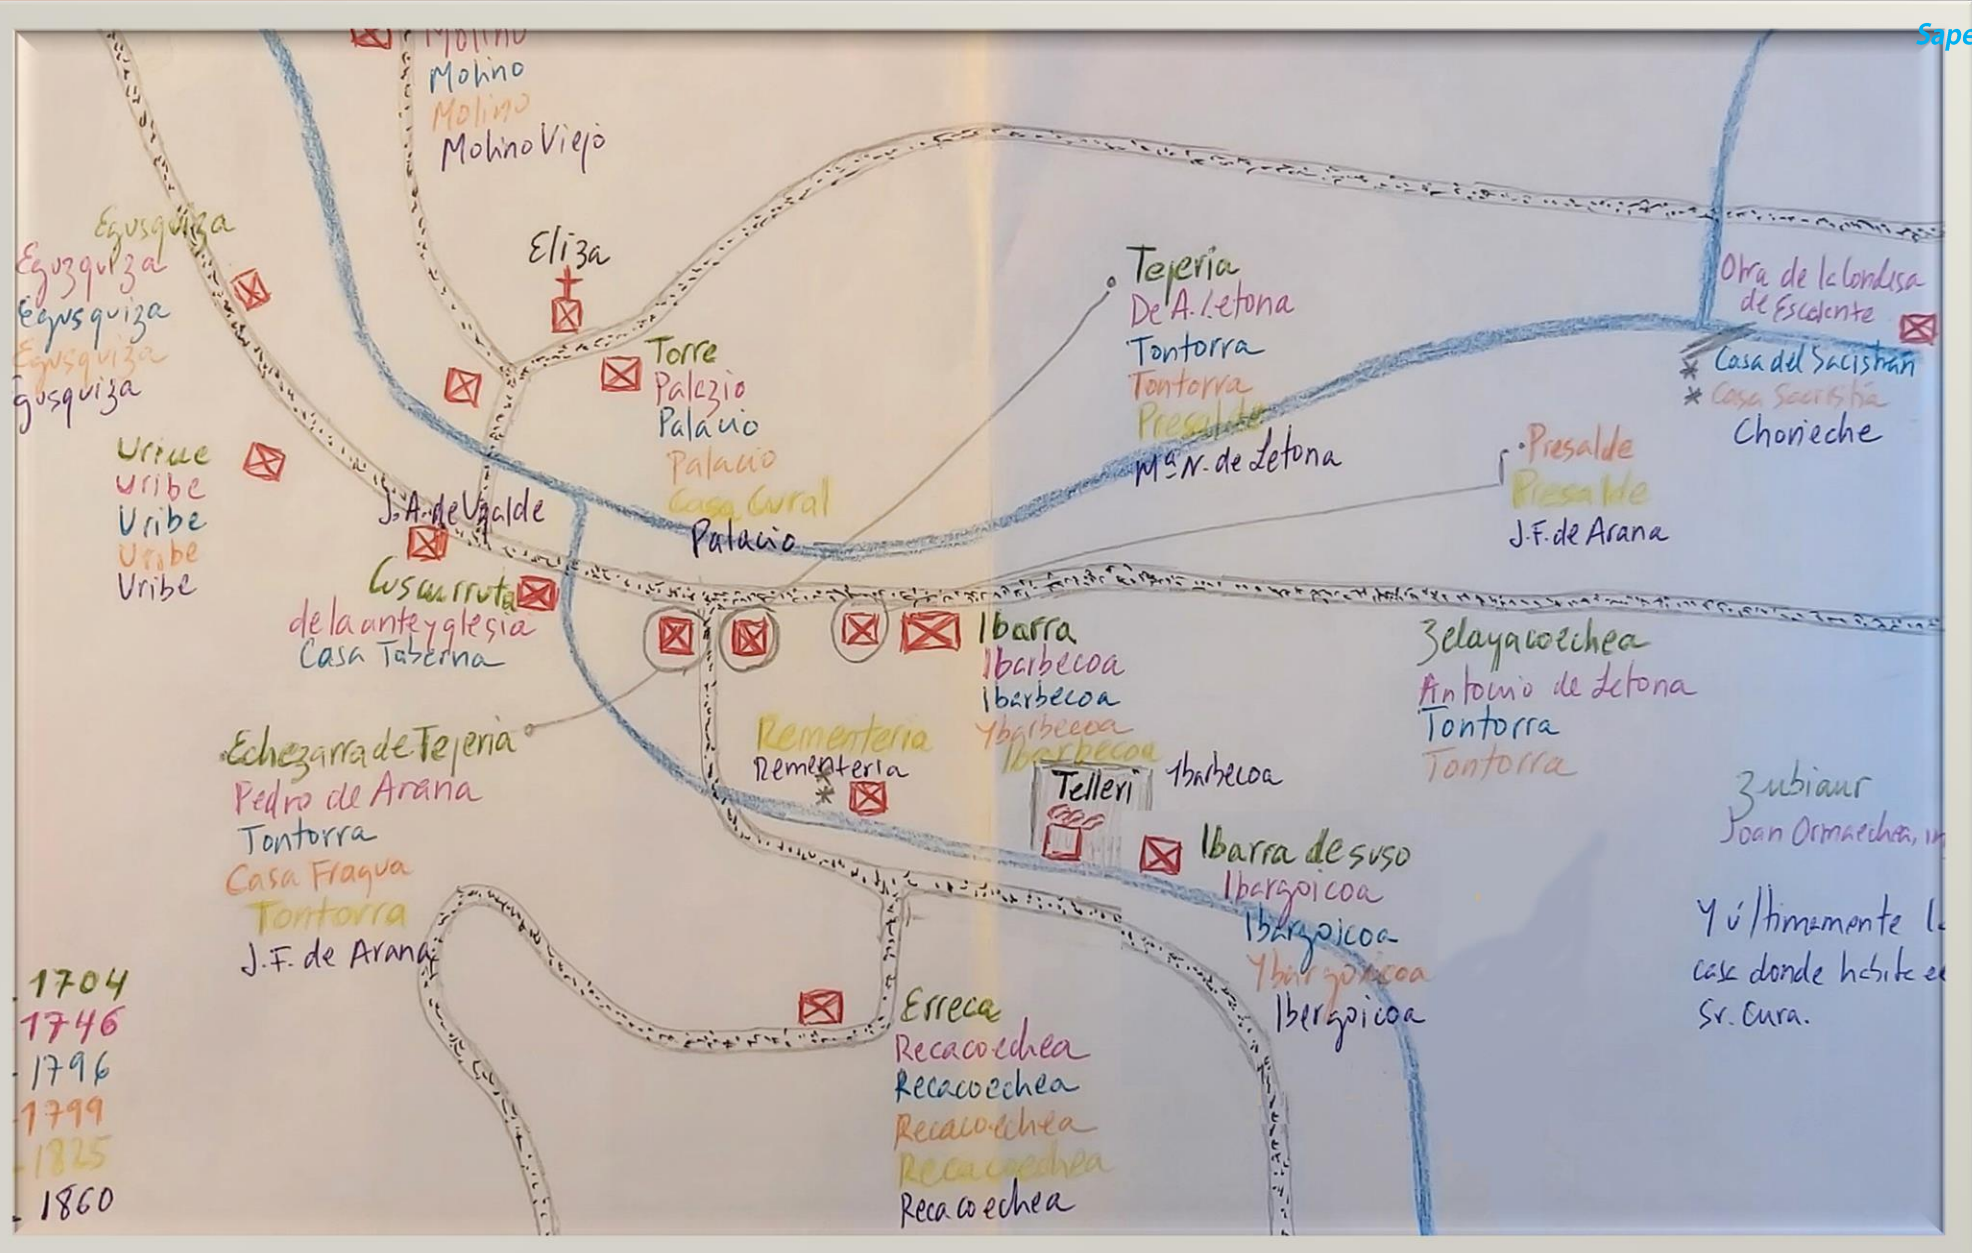 Sape
Molino
Molino
Molino
Molino Viejo
Egusquiza
Eguzquiza
Egusquiza
Egusquiza
Egusquiza
Eliza
Torre
Palazio
Palacio
Palacio
Casa Cural
Palacio
Tejeria
De A. Letona
Tontorra
Tontorra
Presalde
Mª N. de Letona
Obra de la Condesa
de Escalente
* Casa del Sacistrán
* Casa Sacristía
Chorieche
Presalde
Presalde
J.F. de Arana
Urive
Uribe
Uribe
Uribe
Uribe
J.A. de Ugalde
Cuscurruta
de la anteyglesia
Casa Taberna
Ibarra
Ibarbecoa
Ibarbecoa
Ybarbecoa
Ibarbecoa
Ybarbecoa
Zelayacoechea
Antonio de Letona
Tontorra
Tontorra
Echezarra de Tejeria
Pedro de Arana
Tontorra
Casa Fragua
Tontorra
J.F. de Arana
Rementeria
Rementeria
*
*
Telleri
Zubiaur
Joan Ormaechea,
Ibarra de suso
Ibargoicoa
Ibargoicoa
Ybargoicoa
Ibergoicoa
Y últimamente
casa donde habita
Sr. Cura.
Erreca
Recacoechea
Recacoechea
Recacoechea
Recacoechea
Recacoechea
1704
1746
1796
1799
1825
1860